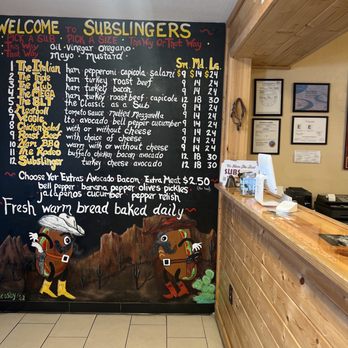 WELCOME TO SUBSLINGERS
PICK A SUB • PICK A SIZE • This Way Or That Way
This Way oil • vinegar • oregano
That Way mayo • mustard
Sm. Md. Lg.
1 The Italian ham pepperoni capicola salami $9 $14 $24
ham turkey 9 14 24
3 The Club ham turkey bacon 9 14 24
ham turkey roast beef capicola 12 18 30
5 The BLT the Classic as a Sub 9 14 24
6 Meatball tomato sauce melted mozzarella 9 14 24
7 Veggie lto avocado bell pepper cucumber 9 14 24
with or without cheese 9 14 24
with or without cheese 9 14 24
BBQ warm with or without cheese 9 14 24
buffalo chicken bacon avocado 12 18 30
12 Subslinger turkey cheesy avocado 12 18 30
Choose Yer Extras Avocado Bacon Extra Meat $2.50
bell pepper banana pepper olives pickles
jalapeños cucumber pepper relish
Fresh warm bread baked daily
SUBS